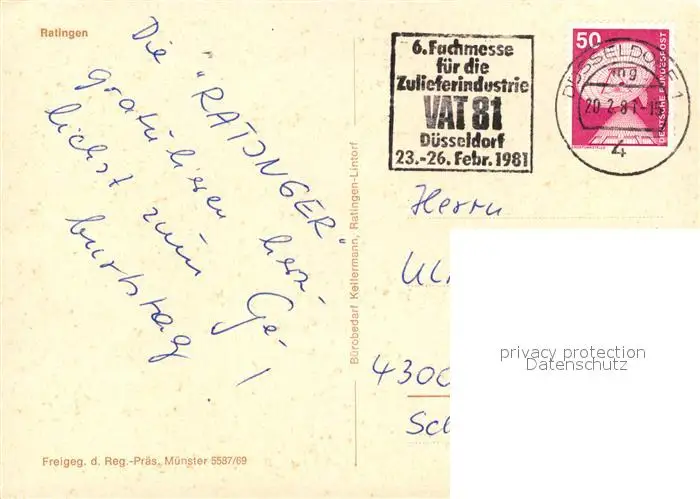 Ratingen
Die "RATINGER"
gratulieren herz-
lichst zum Ge-
burtstag!
Freigeg. d. Reg.-Präs. Münster 5587/69
Bürobedarf Keltermann, Ratingen-Lintorf
6. Fachmesse
für die
Zulieferindustrie
VAT 81
Düsseldorf
23.-26. Febr. 1981
50
DEUTSCHE BUNDESPOST
DÜSSELDORF 1
20.2.81-15
4
Herrn
Ul
4300
Sc
privacy protection
Datenschutz